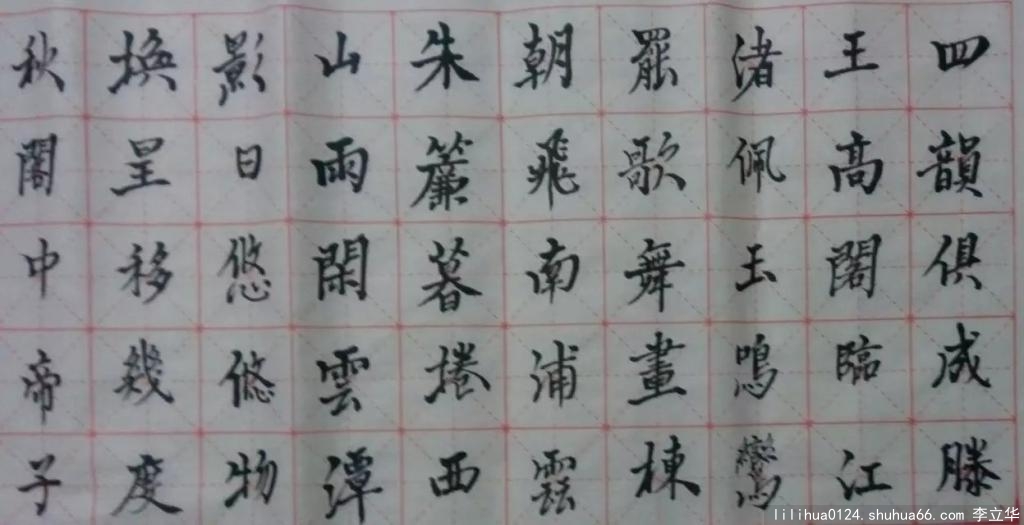 四韻俱成滕
王高閣臨江
渚佩玉鳴鸞
罷歌舞畫棟
朝飛南浦雲
朱簾暮捲西
山雨閑雲潭
影日悠悠物
換呈移幾度
秋閣中帝子
lilihua0124.shuhua66.com 李立华